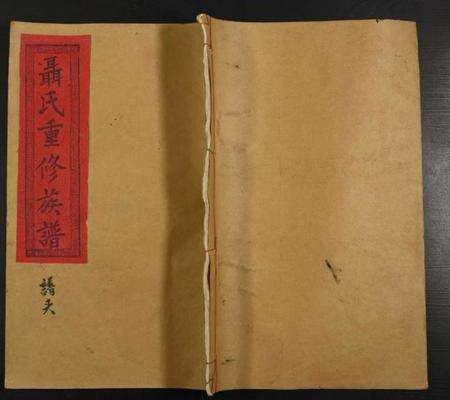 聶氏重修族譜
譜天